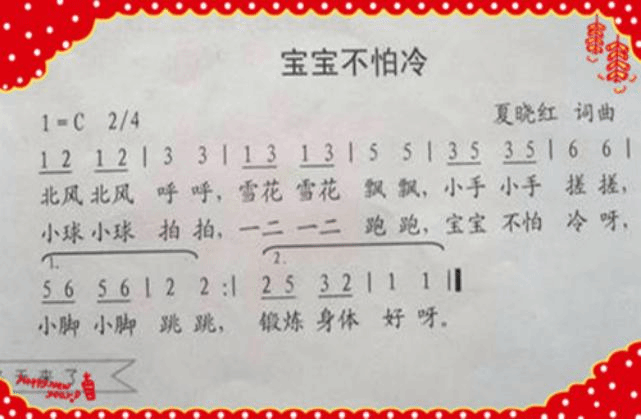 宝宝不怕冷
1=C 2/4
夏晓红 词曲
1 2 1 2 | 3 3 | 1 3 1 3 | 5 5 | 3 5 3 5 | 6 6 |
北风 北风 呼 呼, 雪花 雪花 飘 飘, 小手 小手 搓 搓,
小球 小球 拍 拍, 一二 一二 跑 跑, 宝宝 不怕 冷 呀,
1. 2.
5 6 5 6 | 2 2 :| 2 5 3 2 | 1 1 ‖
小脚 小脚 跳 跳, 锻炼 身体 好 呀。
天来了
Happy new year